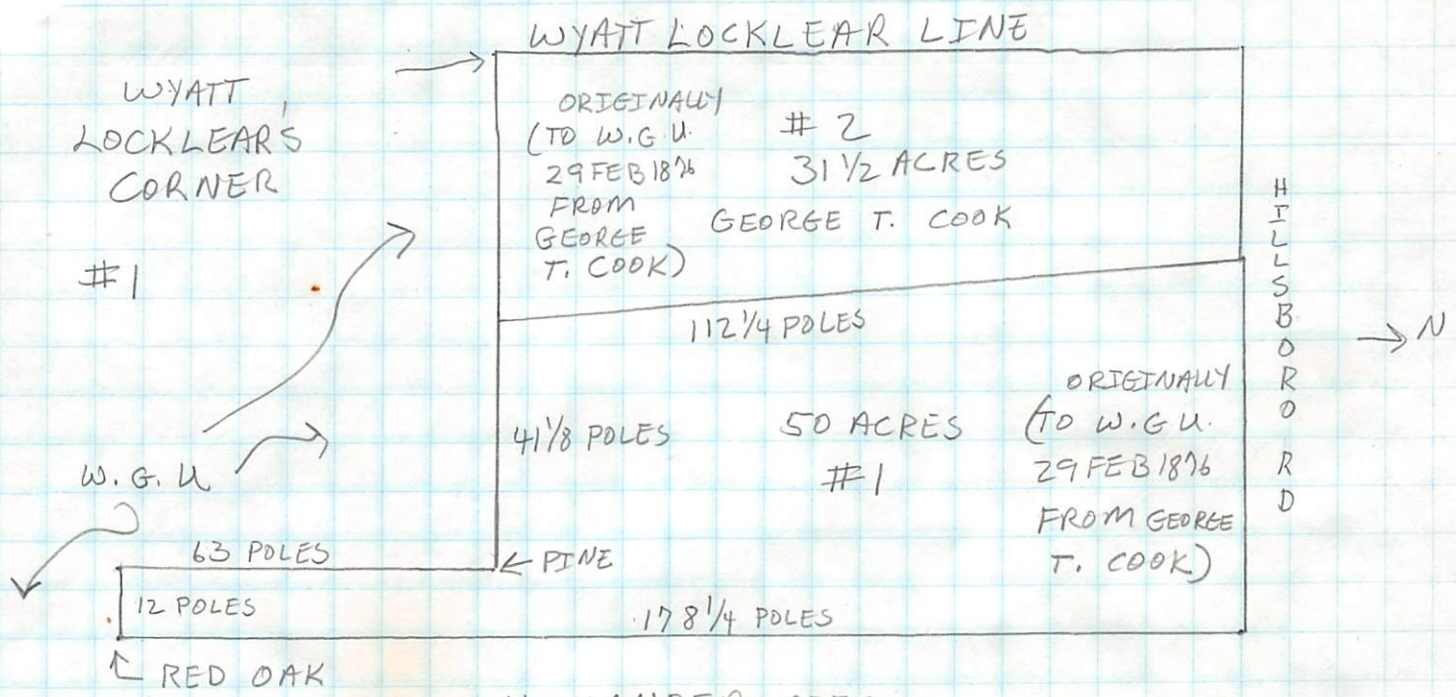 WYATT LOCKLEAR LINE
WYATT
LOCKLEAR'S
CORNER
#1
ORIGINALLY
(TO W.G.U.
29 FEB 1876
FROM
GEORGE
T. COOK)
# 2
31 1/2 ACRES
GEORGE T. COOK
HILLSBORO RD
N
112 1/4 POLES
41 1/8 POLES
50 ACRES
#1
ORIGINALLY
(TO W.G.U.
29 FEB 1876
FROM GEORGE
T. COOK)
W.G.U.
63 POLES
PINE
12 POLES
178 1/4 POLES
RED OAK